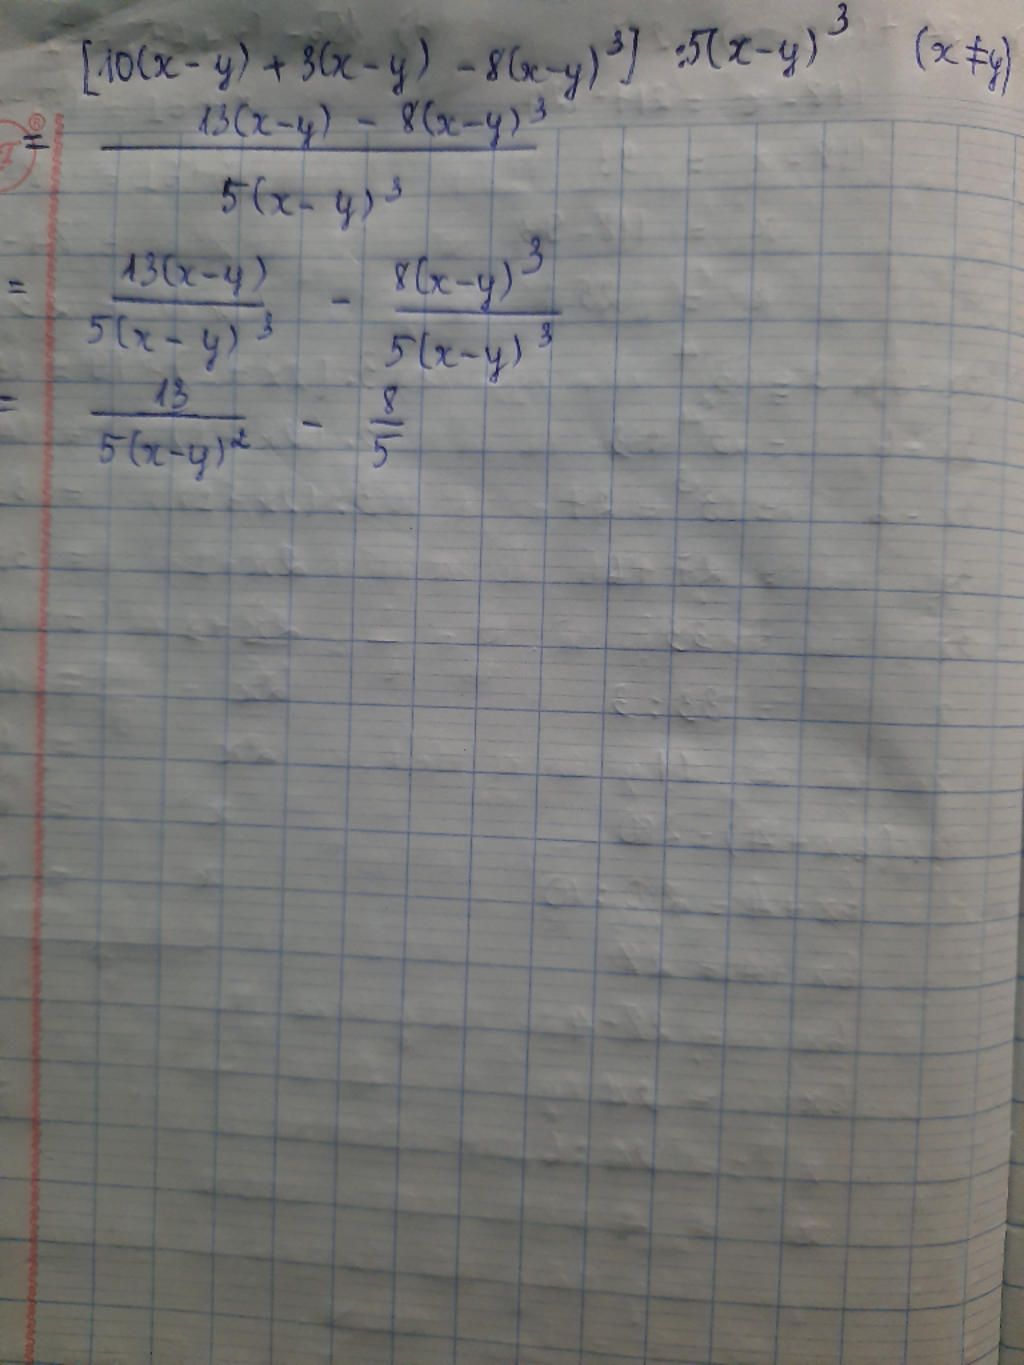 [10(x-y) + 3(x-y) - 8(x-y)³] : 5(x-y)³ (x ≠ y)
= \frac{13(x-y) - 8(x-y)³}{5(x-y)³}
= \frac{13(x-y)}{5(x-y)³} - \frac{8(x-y)³}{5(x-y)³}
= \frac{13}{5(x-y)²} - \frac{8}{5}